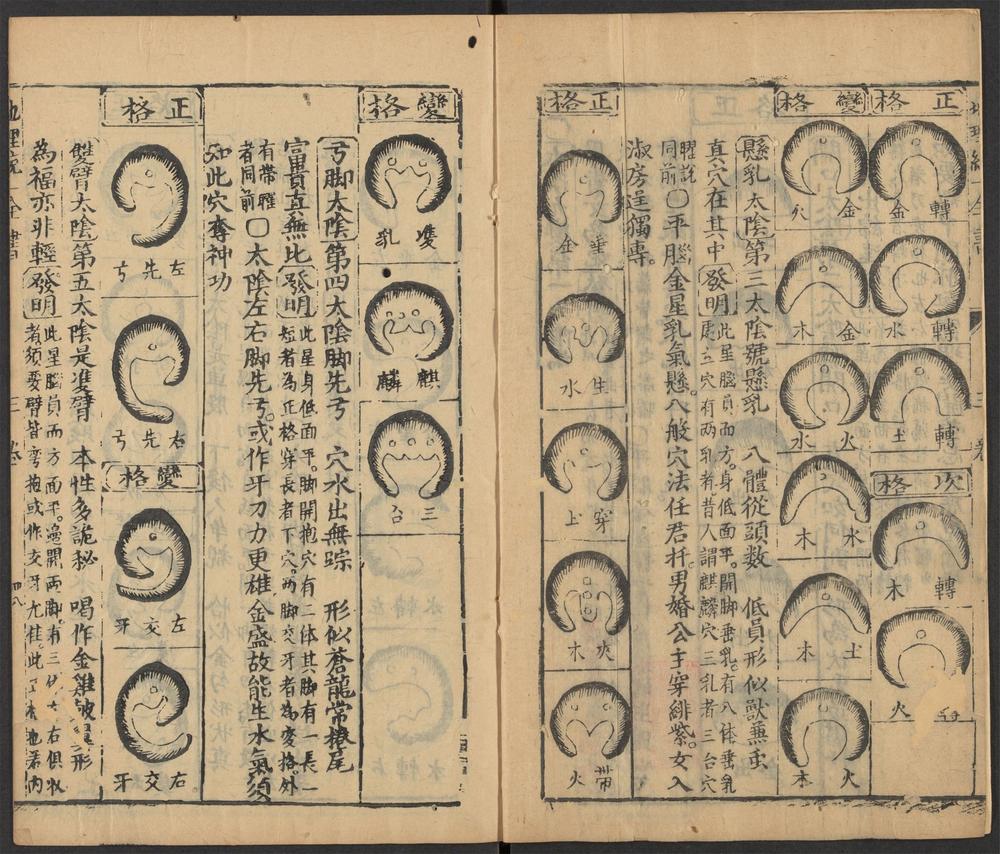 正格
轉金
轉水
轉土
次格
轉木
火
變格
金
金木
火水
水木
土木
火木
懸乳太陰第三太陰號懸乳 八體從頭數 低員形似獸無虫
真穴在其中 發明 此星腦員而方。身低面平。開脚垂乳。有八体垂乳
穴有两乳者昔人謂麒麟穴三乳者三台穴
曜說同前 ○平腦金星乳氣懸。八般穴法任君扦。男婚公主穿緋紫。女入
淑房逞獨專。
正格
垂金
生水
穿土
夾木
帶火
變格
雙乳
麒麟
三台
弓脚太陰第四太陰脚先弓 穴水出無踪 形似蒼龍常捲尾
富貴真無比 發明 此星身低面平。脚開抱穴有二体其脚有一長一
短者為正格穿長者下穴。两脚交牙者為变格。外
有帶曜者同前 ○太陰左右脚先弓。或作牙刀力更雄金盛故能生水氣須
知此穴奪神功
正格
左先弓
右先弓
變格
左交牙
右交牙
雙臂太陰第五太陰是雙臂 本性多詭秘 喝作金雞 形
為福亦非輕 發明 此星腦員而方面平。邉開两脚。有三 左右俱
者須要臂皆弯抱或作交牙尤佳。此